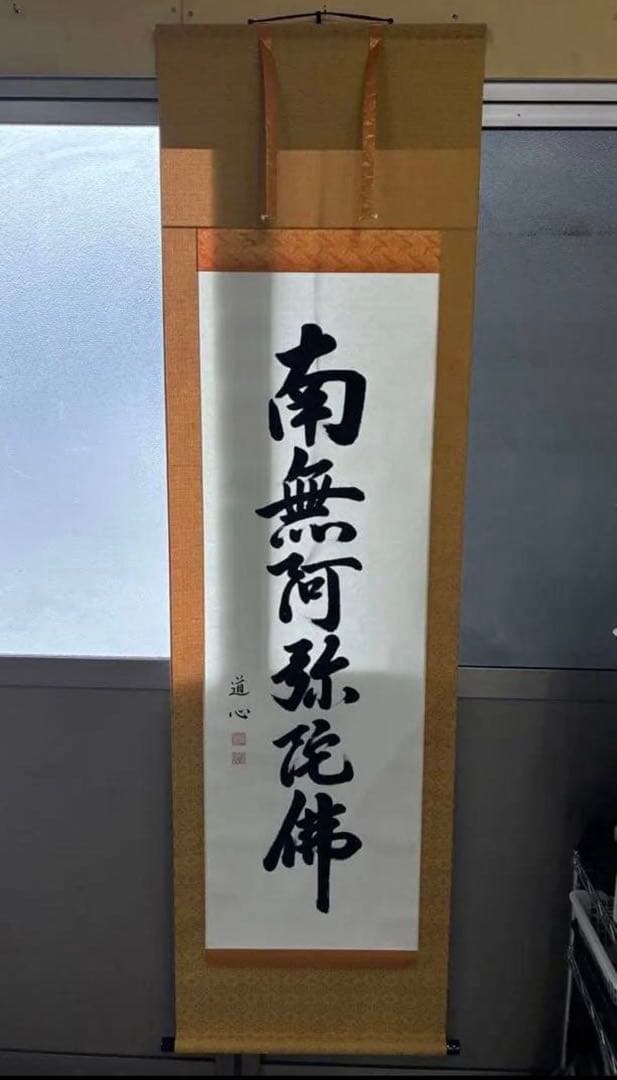 南無阿弥陀佛
道心